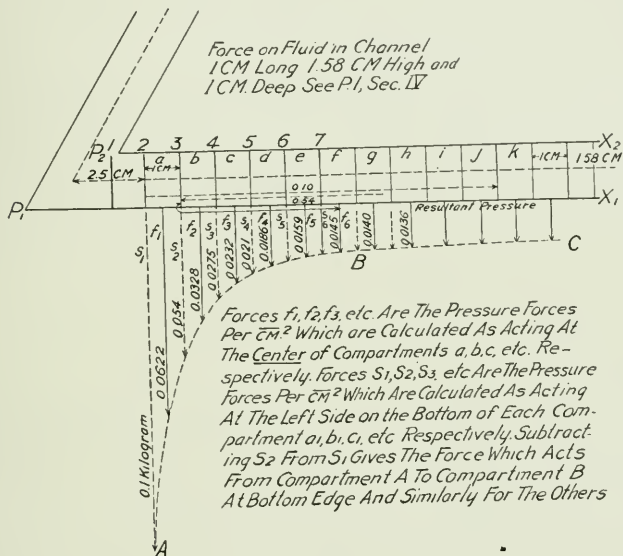 Force on Fluid in Channel
1 CM Long 1.58 CM High and
1 CM. Deep See P.1, Sec. IV
P2 1 2 3 4 5 6 7 X2
a b c d e f g h i J k
1CM 1CM 1.58 CM
2.5 CM
0.10
P1 0.54 X1
Resultant Pressure
S1 f1 S2 f2 S3 f3 S4 f4 S5 f5 S6 f6
0.1 Kilogram
0.0622
0.054
0.0328
0.0275
0.0232
0.021
0.0186
0.0159
0.0145
0.0140
0.0136
B C
A
Forces f1, f2, f3, etc. Are The Pressure Forces
Per CM.2 Which are Calculated As Acting At
The Center of Compartments a, b, c, etc. Re-
spectively. Forces S1, S2, S3, etc Are The Pressure
Forces Per CM2 Which Are Calculated As Acting
At The Left Side on the Bottom of Each Com-
partment a1, b1, c1, etc Respectively. Subtract-
ing S2 From S1 Gives The Force Which Acts
From Compartment A To Compartment B
At Bottom Edge And Similarly For The Others